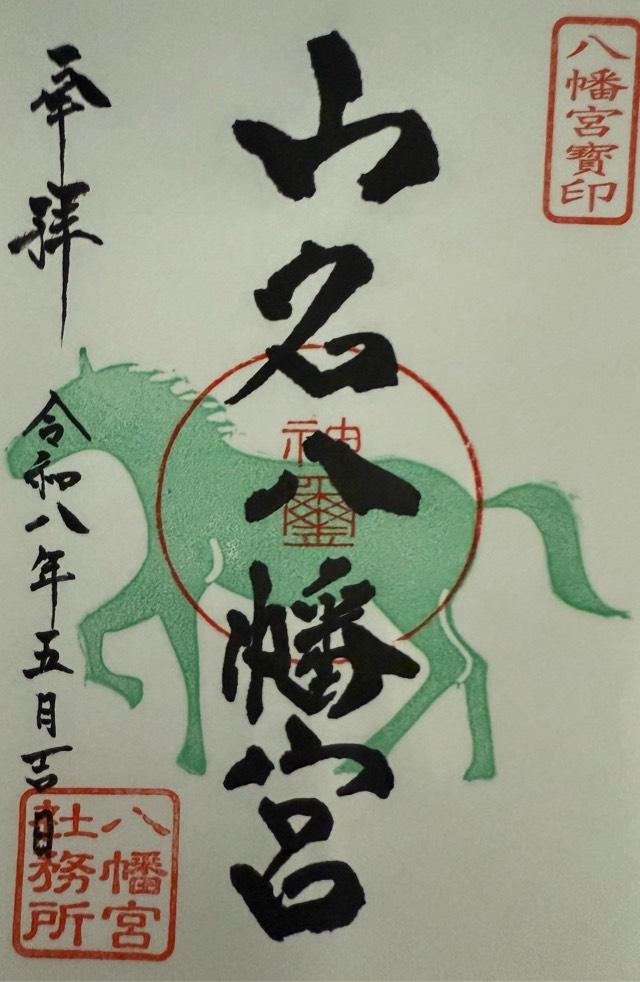 八幡宮寶印
山名八幡宮
神璽
奉拝
令和八年五月吉日
八幡宮
社務所